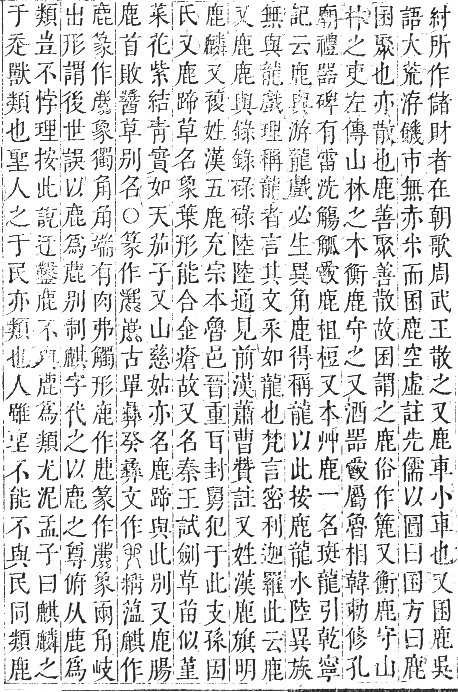 紂所作儲財者在朝歌周武王散之又鹿車小車也又囷鹿吳
語大荒洊饑市無赤米而囷鹿空虛註先儒以圓曰囷方曰鹿
囷聚也亦散也鹿善聚善散故囷謂之鹿俗作簏又衡鹿守山
林之吏左傳山林之木衡鹿守之又酒器屬魯相韓勅修孔
廟禮器碑有雷洗觴觚鹿柤梪又本艸鹿一名斑龍引乾寧
記云鹿與游龍戲必生異角鹿得稱龍以此按鹿龍水陸異族
無與龍戲理稱龍者言其文采如龍也梵言密利迦羅此云鹿
又鹿鹿與錄錄碌碌陸陸通見前漢蕭曹贊註又姓漢鹿旗明
鹿麟又複姓漢五鹿充宗本魯邑晉重耳封舅犯于此支孫因
氏又鹿蹄草名象葉形能合金瘡故又名秦王試劍草苗似堇
菜花紫結青實如天茄子又山慈姑亦名鹿蹄與此別又鹿腸
鹿首敗醬草別名○篆作古單彝癸彝文作薀麒作
鹿篆作象獨角角端有肉弗觸形鹿作篆作象兩角岐
出形謂後世誤以鹿為別制麒字代之以鹿之尊俯从鹿為
類豈不悖理按此說迂鑿鹿不與鹿為類尤泥孟子曰麒麟之
于走獸類也聖人之于民亦類也人雖聖不能不與民同類鹿